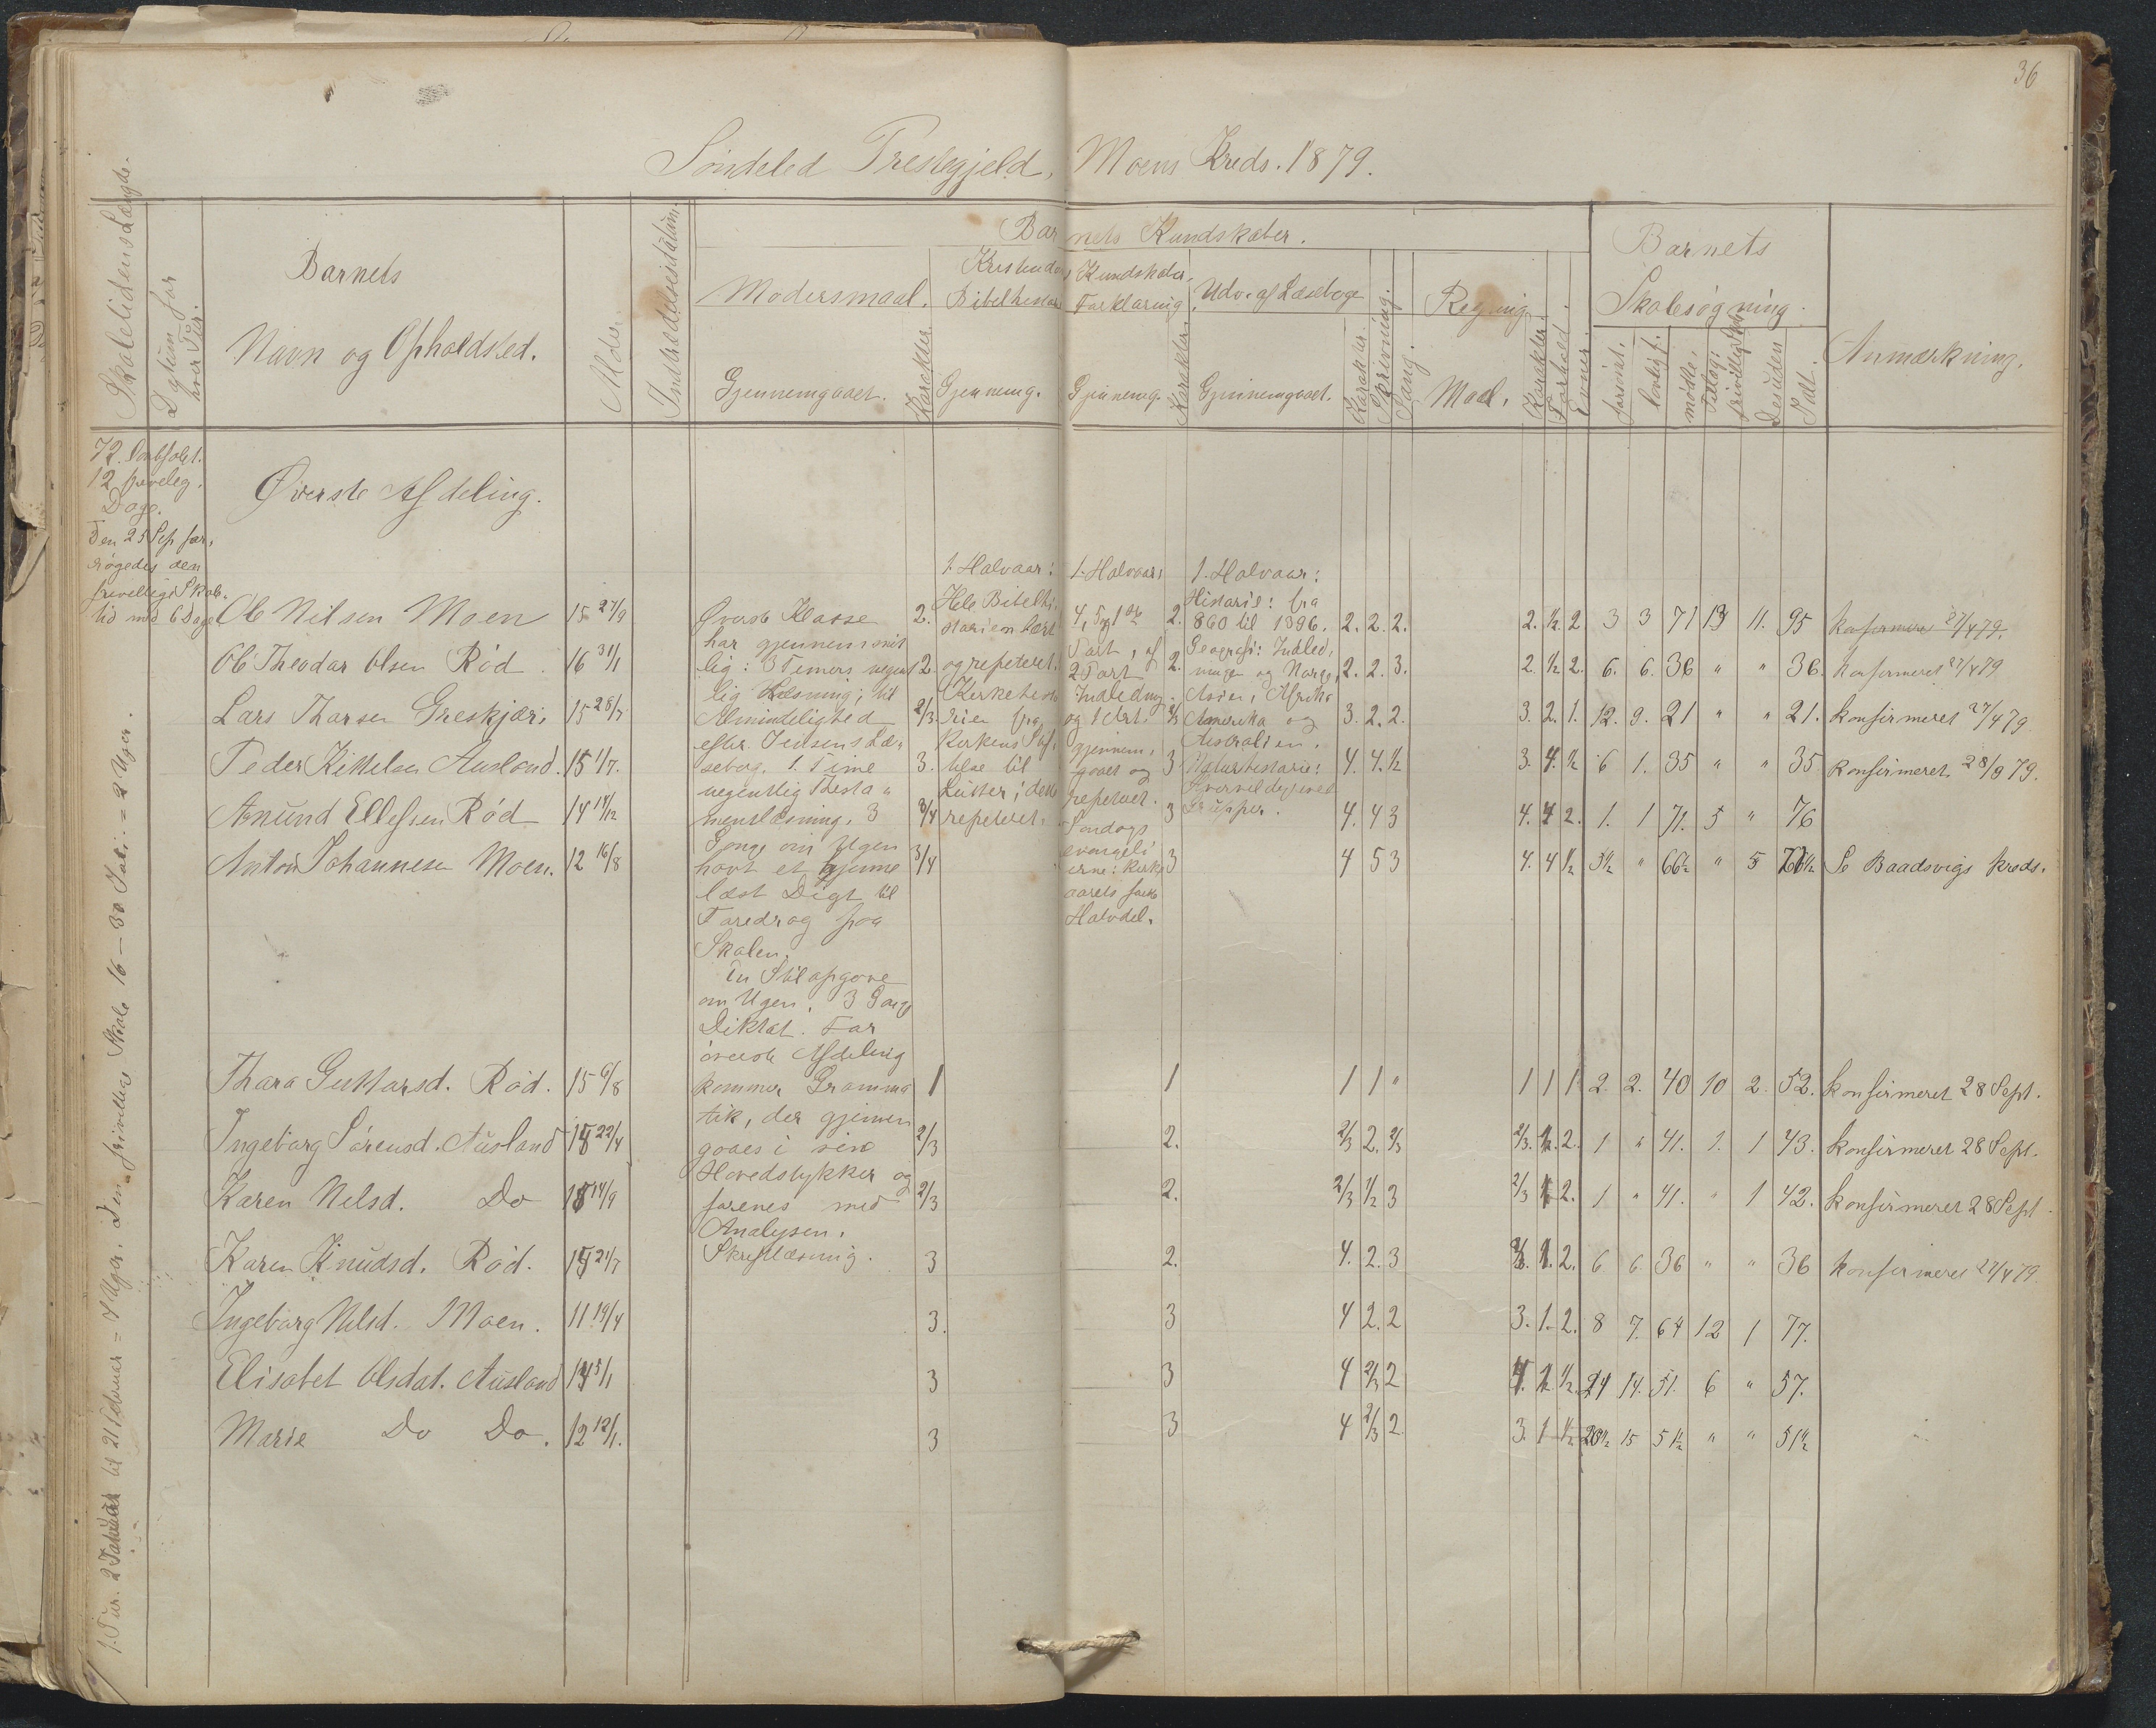 36
Søndeled Prestegjeld, Moens Kreds. 1879.
Skoletidens Længde.
Datum for hver Tur.
Barnets
Navn og Opholdsted.
Alder.
Indtrædelsesdatum.
Barnets Kundskaber.
Modersmaal.
Gjennemgaaet.
Karakter
Kristendoms Kundskaber.
Bibelhistorie
Forklaring
Gjennemg.
Gjennemg.
Karakter.
Udv. af Læseboge
Gjennemgaaet.
Karakter.
Skrivning.
Sang.
Regning.
Maal.
Karakter.
Forhold.
Evner.
Barnets
Skolesøgning.
forsømt.
lovlig f.
mødte.
Desuden
Tall.
Anmærkning.
72. Lovbefalet.
12 friveleg.
Dage.
Den 25 Sep for,
øgedes den
frivillige Skole,
tid med 6 Dage
Øverste Afdeling.
1. Halvaar:
Hele Bibelhi,
storien lært
og repeteret.
Kirkehisto
rien fra
Kirkens Stif,
telse til
Luther; dette
repeteret.
1. Halvaar:
4, 5 og 1ste
Part, af
2 Part
Indledning.
og 1 Art.
gjennem,
gaaet og
repeteret.
Søndags
evangeli
erne: Kirke
aarets første
Halvdel.
1. Halvaar:
Historie: fra
860 til 1396.
Geografi: Indled,
ningen og Norge,
Asien, Afrika
Amerika og
Australien.
Naturhistorie:
Hvirveldyrenes
Grupper.
Øverste Klasse
har gjennemsnit
lig: 3 Timers ugent
lig Læsning; til
Almindelighed
efter Jensens Læ,
sebog. 1. Time
ugentlig Testa,,
mentlæsning. 3
Gange om Ugen
havt et hjemme
læst Digt til
Foredrag paa
Skolen.
En Stilopgave
om Ugen. 3 Gange
Diktat. For
øverste Afdeling
kommer Gramma
tik, der gjennem
gaaes i sine
Hovedstykker og
forenes med
Analysen.
Skriftlæsning.
Ole Nilsen Moen 15 27/9 2. 2. 2. 2. 2. 2. ½. 2 3 3 71 13 11. 95 konfirmeret 27/4 79.
Ole Theodor Olsen Rød. 16 31/1 2. 2. 2. 2. 3. 2. ½ 2. 6. 6. 36 " " 36. konfirmeret 27/4 79
Lars Thorsen Greskjær, 15 28/7 2/3 2/3 3. 2. 2. 3. 2. 1. 12. 9. 21 " " 21. konfirmeret 27/4 79
Peder Kittelsen Ausland. 15 1/7. 3. 3 4. 4. ½ 3. 4. ½ 6 1. 35 " " 35 konfirmeret 28/9 79.
Anund Ellefsen Rød 14 14/12 3/4 3 4. 4 3 4. 4 2. 1. 1 71. 5 " 76
Anton Johannesen Moen. 12 16/8 3/4 3 4 5 3 4. 4 ½ 5½ " 66½ " 5 71½ Se Baadsvigs kreds.
Thora Guttorsd. Rød. 15 6/8 1 1 1 1 " 1 1 1 2. 2. 40 10 2. 52. konfirmeret 28 Sept.
Ingeborg Sørensd. Ausland 15 22/4 2/3 2. 2/3 2. 2/3 2/3. 1. 2. 1 " 41. 1. 1 43. konfirmeret 28 Sept.
Karen Nelsd. Do 15 14/9 2/3 2. 2/3 ½ 3 2/3 1 2. 1 " 41. " 1 42. konfirmeret 28 Sept.
Karen Knudsd. Rød. 15 21/7 3 2. 4. 2. 3 3. 1. 2. 6 6. 36 " " 36 konfirmeret 27/4 79.
Ingeborg Nelsd. Moen. 11 19/4 3. 3 4 2. 2 3. 1. 2. 8 7. 64 12 1 77.
Elisabet Olsdat. Ausland 14 5/1 3 3 4 2/3 2 4. 1. ½. 24 14. 51. 6 " 57.
Marie Do Do. 12 12/1. 3 3 4 2/3 2 3. 1 ½ 20½ 15 51½ " " 51½
1. Tur. 2 Januar til 21 Februar = 7 Uger. Den frivillige Skole 16 – 30 Juli. = 2 Uger.